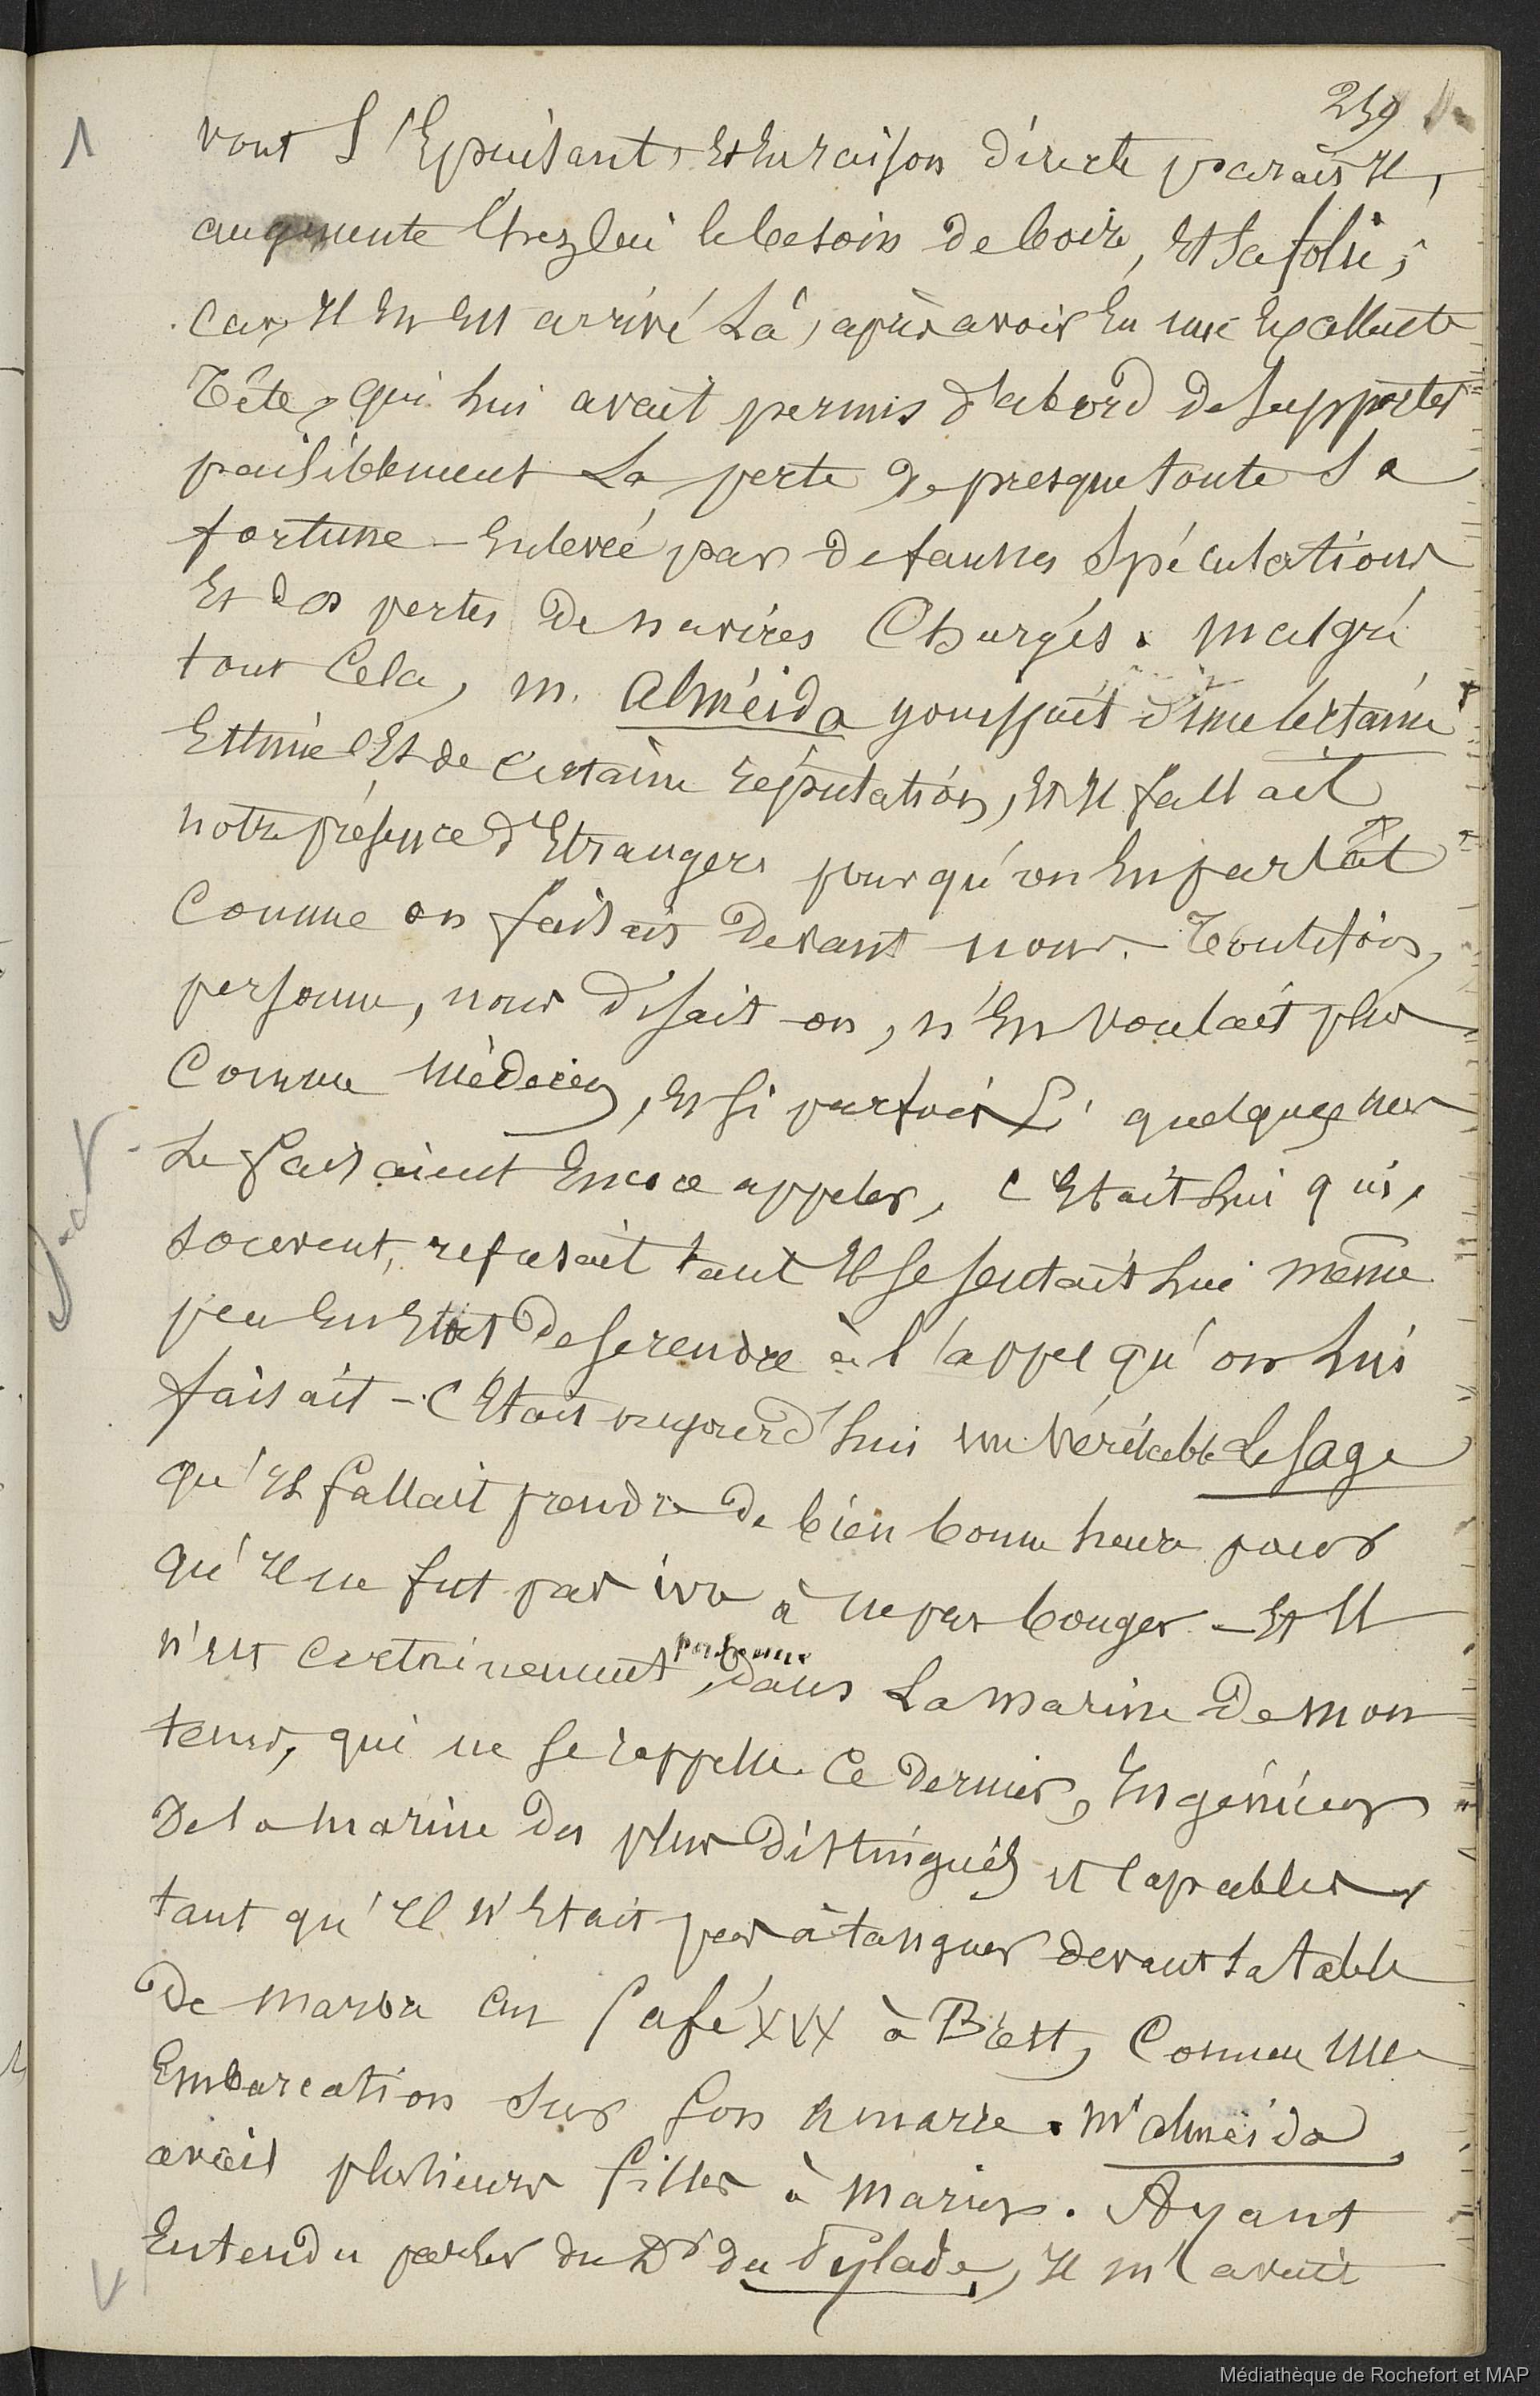 259
1
vont s'Epuisant, Et En raison directe parait Il,
augmente Chez lui le besoin de boire, Et sa folie;
Car, Il En Est arrivé Là, après avoir Eu une Excellente
Tête, qui Lui avait permis d'abord de supporter
paisiblement La perte de presque toute Sa
fortune - Enlevée par de fausses Spéculations
Et des pertes de navires Chargés. malgré
tout Cela, m. Alméida jouissait d'une Certaine
Estime Et de Certaine réputation, Et Il fallait
notre présence d'Etrangers pour qu'on En parlât
Comme on faisait devant nous. - Toutefois,
personne, nous disait-on, n'En voulait plus
Comme médecin, Et si parfois quelques uns
Le faisaient Encore appeler, C'Etait Lui qui,
souvent, refusait tant Il se sentait Lui même
peu En Etat de se rendre à l'appel qu'on Lui
faisait - C'Etait aujourd'hui un véritable Lesage
qu'Il fallait prendre de bien bonne heure pour
qu'Il ne fut pas ivre à ne pas bouger - Et Il
n'est Certainement personne, dans La marine de mon
tems, qui ne se rappelle Ce dernier, Ingénieur
De la marine des plus distingués et Capables
tant qu'Il n'Etait pas à tanguer devant la table
de marbre au Café XXX à Brest, Comme une
Embarcation sur Son amarre. Mr Alméida,
avait plusieurs filles à marier. Ayant
Entendu parler du Dr du Pylade, Il m'avait
Médiathèque de Rochefort et MAP